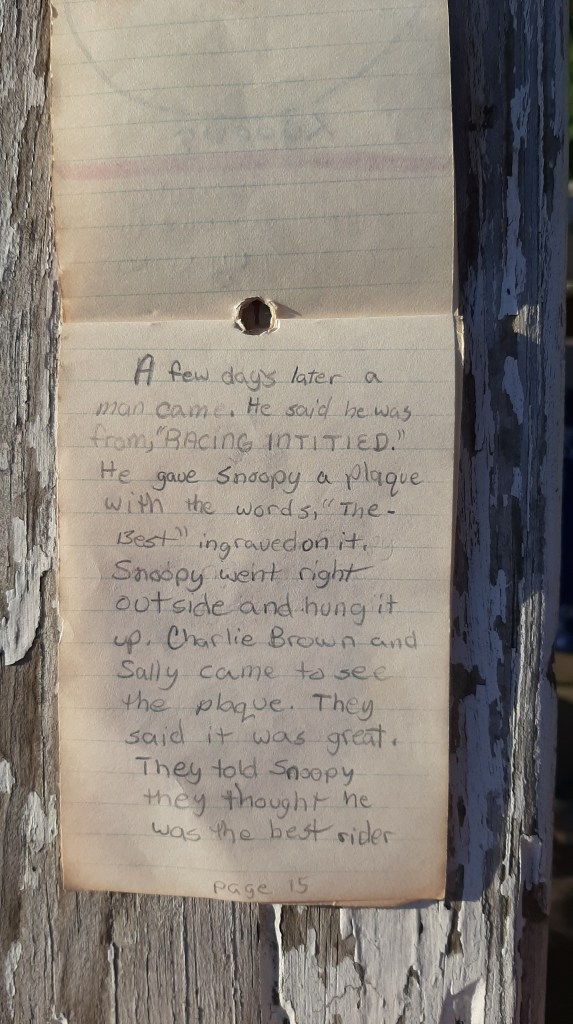 A few days later a
man came. He said he was
from, "RACING INTITIED."
He gave Snoopy a plaque
with the words, "The-
Best" ingraved on it.
Snoopy went right
outside and hung it
up. Charlie Brown and
Sally came to see
the plaque. They
said it was great.
They told Snoopy
they thought he
was the best rider
page 15